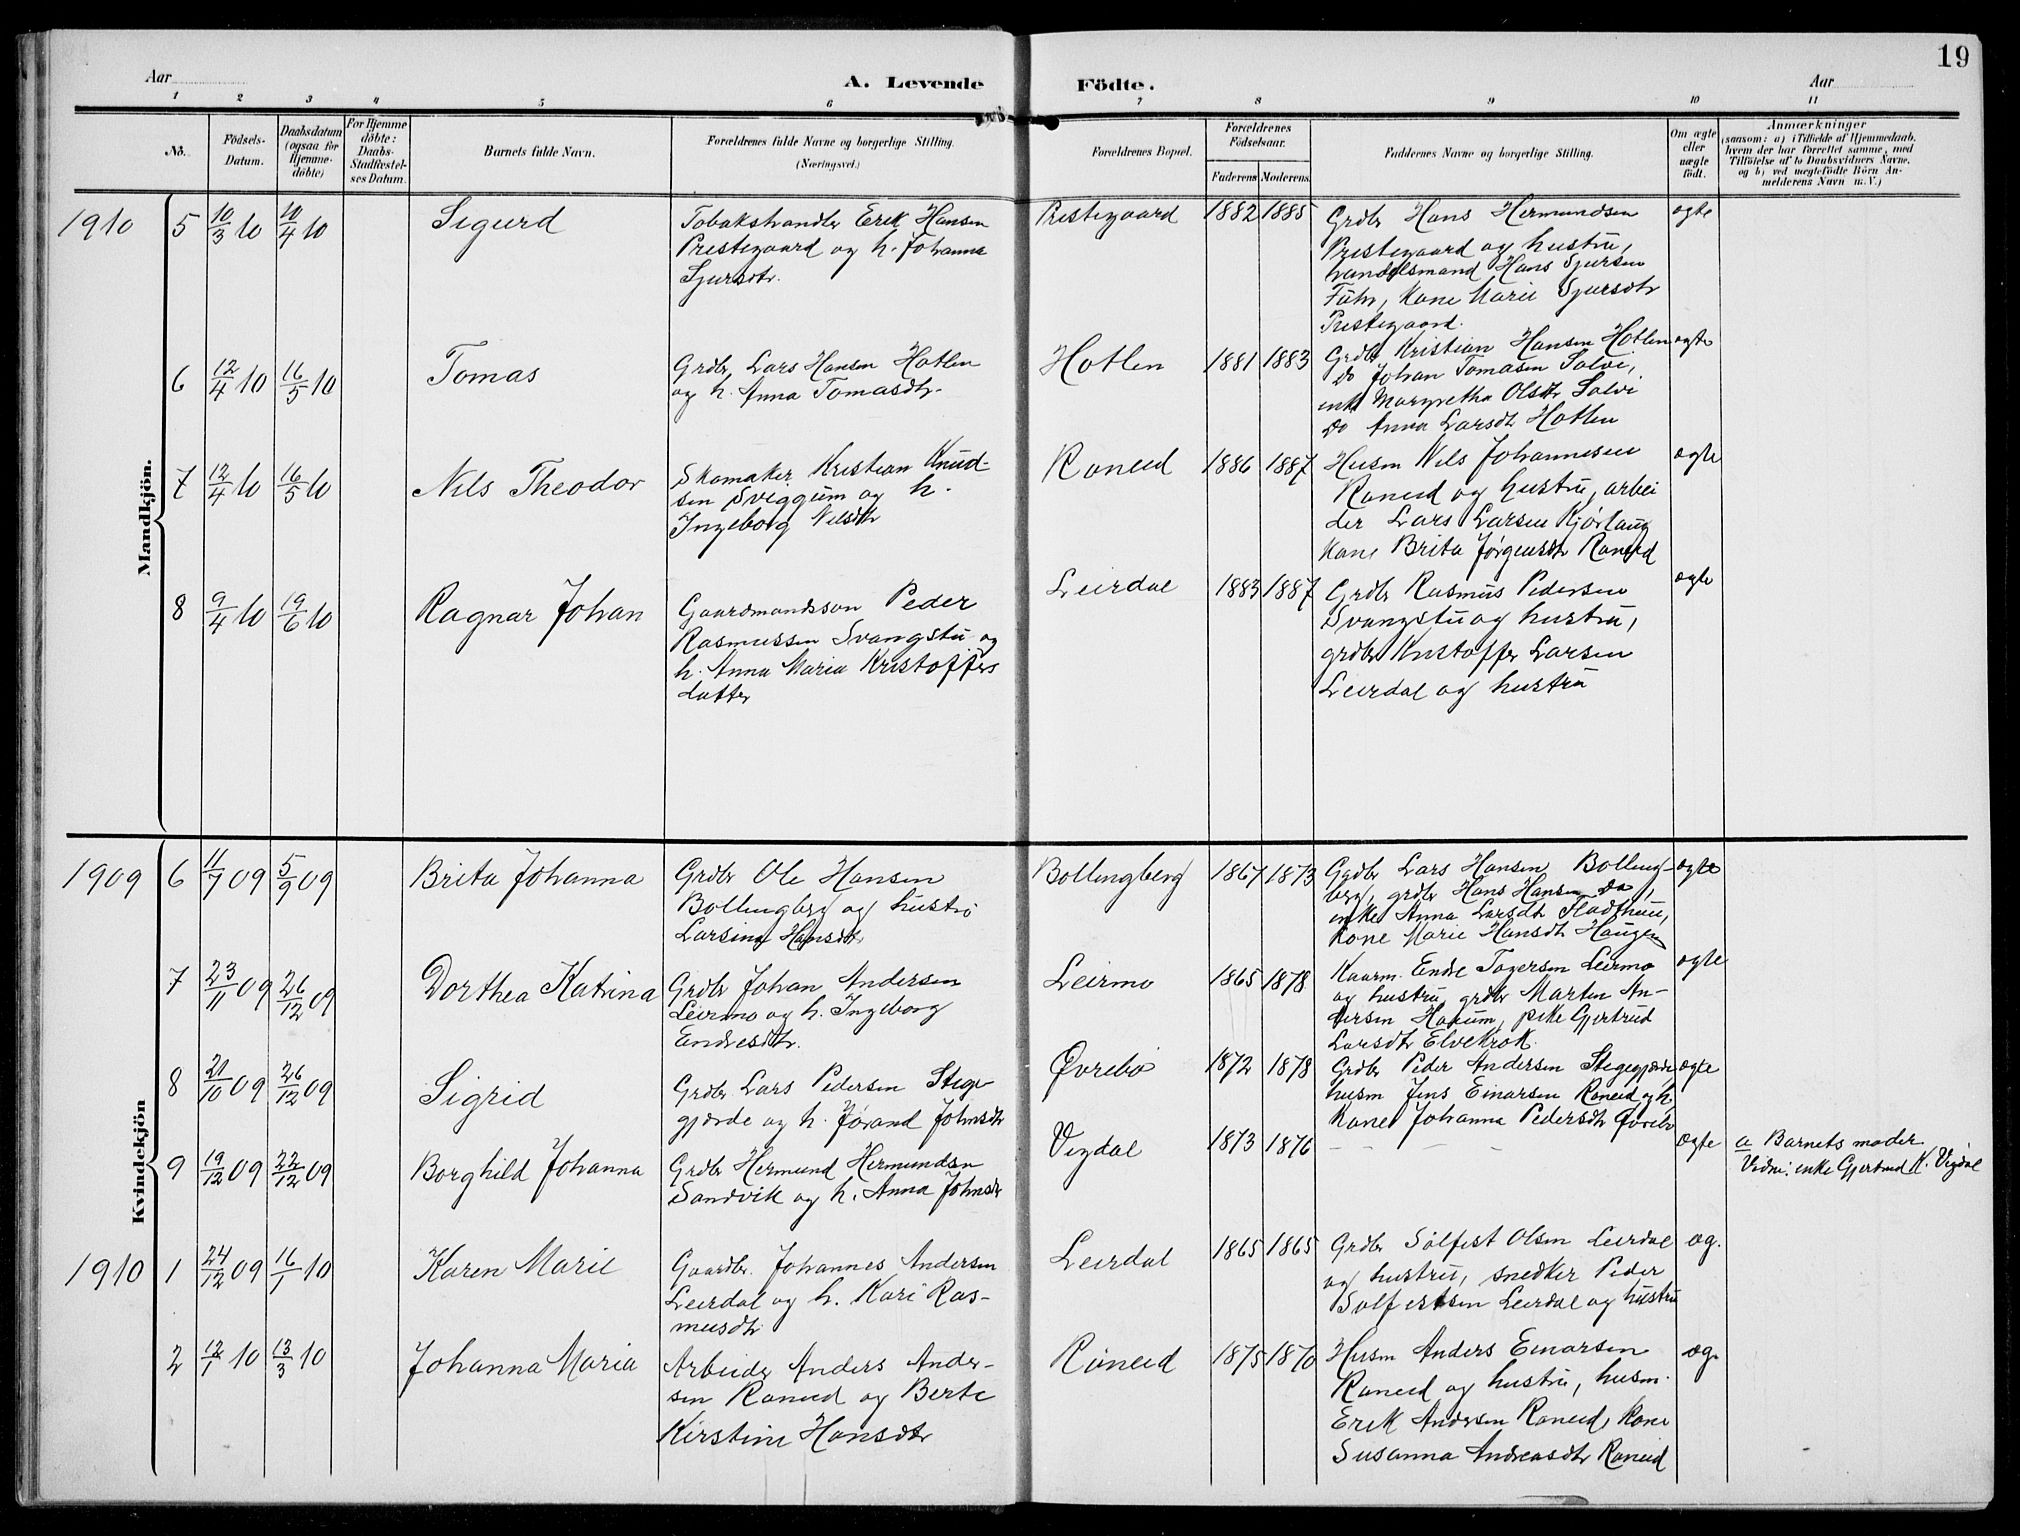 19
Aar
A. Levende
Födte.
Aar
1 2 3 4 5 6 7 8 9 10 11
No.
Födsels-Datum.
Daabsdatum (ogsaa for Hjemme-döbte)
For Hjemme döbte: Daabs-Stadfæstel-ses Datum.
Barnets fulde Navn.
Forældrenes fulde Navne og borgerlige Stilling. (Næringsvei.)
Forældrenes Bopæl.
Forældrenes Födselsaar.
Faderens Moderens
Faddernes Navne og borgerlige Stilling.
Om ægte eller uægte födt.
Anmærkninger
(saasom: a) i Tilfælde af Hjemmedaab,
hvem der har forrettet samme, med
Tilföielse af to Daabsvidners Navne.
og b) ved uægtefödte Börn An-
melderens Navn m. V.)
Mandkjön.
1910 5 10/3 10 10/4 10 Sigurd
Tobakshandler Erik Hansen
Prestegaard og h. Johanna
Sjursdtr.
Prestegaard 1882 1885
Grdbr Hans Hermundsen
Prestegaard og hustru,
handelsmand Hans Sjursen
Fuhr, Kone Marie Sjursdtr
Prestegaard.
ægte
6 12/4 10 16/5 10 Tomas
Grdbr Lars Hansen Hatlen
og h. Anna Tomasdtr.
Hatlen 1881 1883
Grdbr Kristian Hansen Hatlen
Do Johan Tomasen Solvi,
enke Margretha Olsdtr Solvi
Do Anna Larsdtr Hatlen
ægte
7 12/4 10 16/5 10 Nils Theodor
Skomaker Kristian Knud-
sen Sviggum og h.
Ingeborg Nilsdtr
Roneid 1886 1887
Husm Nils Johannesen
Roneid og hustru, arbei
der Lars Larsen Kjörlaug
Kone Brita Jørgensdtr Roneid
ægte
8 9/4 10 19/6 10 Ragnar Johan
Gaardmandsson Peder
Rasmussen Svangstu og
h. Anna Maria Kristoffers
datter
Leirdal 1883 1887
Grdbr Rasmus Pedersen
Svangstu og hustru,
grdbr Kristoffer Larsen
Leirdal og hustru
ægte
Kvindekjön
1909 6 11/7 09 5/9 09 Brita Johanna
Grdbr Ole Hansen
Bollingberg og hustru
Larsina Hansdtr
Bollingberg 1867 1873
Grdbr Lars Hansen Bolling-
berg, grdbr Hans Hansen Do,
enke Anna Larsdtr Fladhaug,
Kone Marie Hansdtr Haugen
ægte
7 23/11 09 26/12 09 Dorthea Katrina
Grdbr Johan Andersen
Leirmo og h. Ingeborg
Endresdtr.
Leirmo 1865 1878
Kaarm. Endre Togersen Leirmo
og hustru, grdbr Marten An-
dersen Havum, pike Gjertrud
Larsdtr Elvekrok
ægte
8 21/10 09 26/12 09 Sigrid
Grdbr Lars Pedersen Stege-
gjærde og h. Jörand Johnsdtr
Øvrebö 1872 1878
Grdbr Peder Andersen Stegegjærde,
husm Jens Einarsen Roneid og h.
Kone Johanna Pedersdtr Øvrebö
ægte
9 19/12 09 22/12 09 Borghild Johanna
Grdbr Hermund Hermundsen
Sandvik og h. Anna Johnsdtr
Vigdal 1873 1876
– – – –
ægte
a Barnets moder
Vidne: enke Gjertrud K. Vigdal
1910 1 24/12 09 16/1 10 Karen Marie
Gaardbr. Johannes Andersen
Leirdal og h. Kari Ras-
musdtr.
Leirdal 1865 1865
Grdbr Sölfest Olsen Leirdal
og hustru, snedker Peder
Solfestsen Leirdal og hustru
æg.
2 12/1 10 13/3 10 Johanna Maria
Arbeider Anders Ander-
sen Roneid og Berte
Kirstine Hansdtr
Röneid 1875 1870
Husm Anders Einarsen
Roneid og hustru, husm.
Erik Andersen Roneid, Kone
Susanna Andreasdtr Roneid
æg.